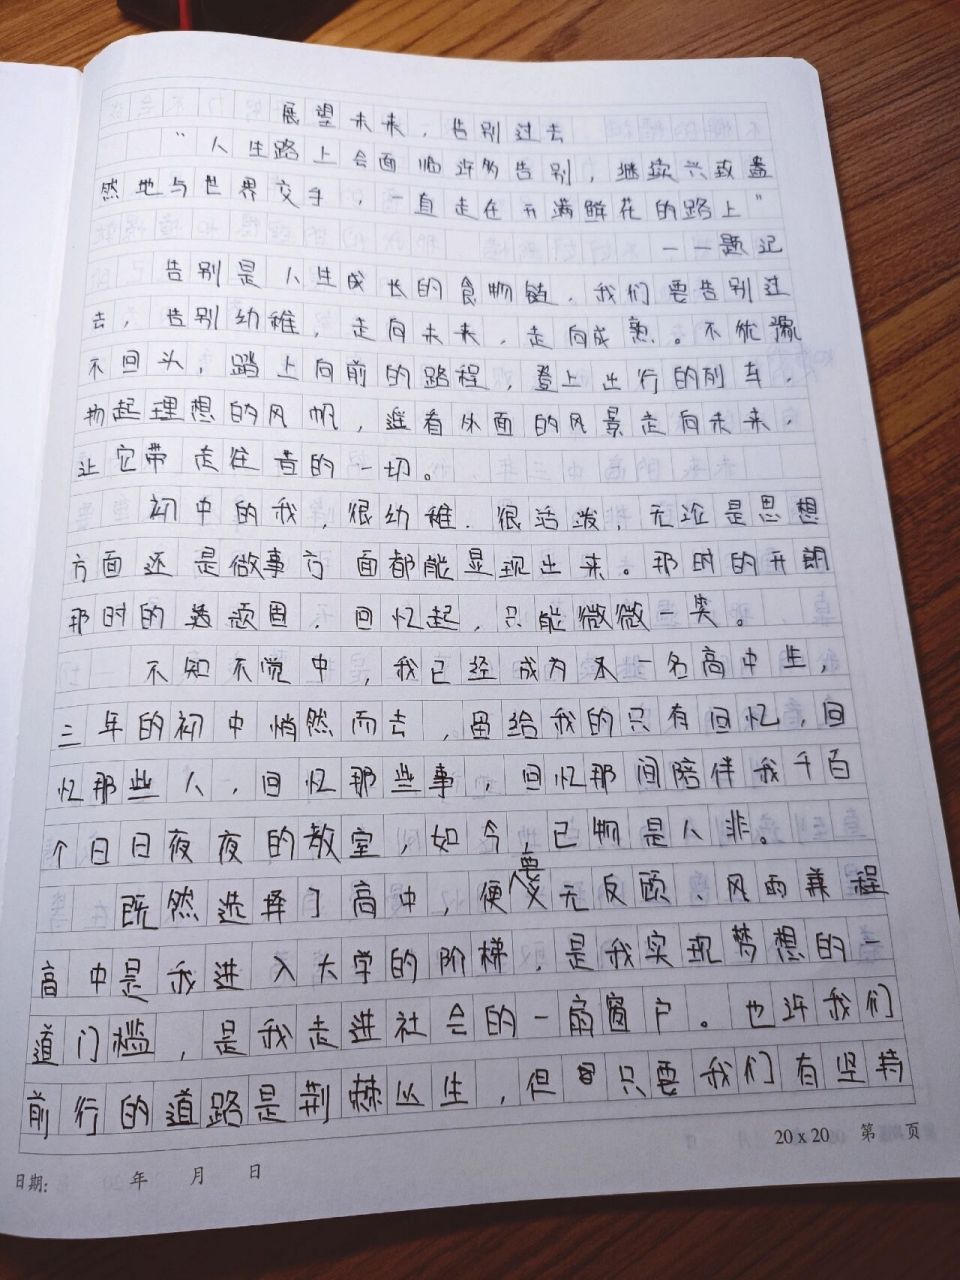 展望未来，告别过去
“人生路上会面临许多告别，继续兴致盎
然地与世界交手，一直走在开满鲜花的路上”
——题记
告别是人生成长的食物链．我们要告别过
去，告别幼稚，走向未来．走向成熟。不能
不回头，踏上向前的路程，登上出行的列车．
扬起理想的风帆，进着外面的风景走向未来．
让它带走往昔的一切。
初中的我，很幼稚．很活泼，无论是思想
方面还是做事方面都能显现出来。那时的开朗
那时的顽固．回忆起，只能微微一笑。
不知不觉中，我已经成为一名高中生，
三年的初中悄然而去，留给我的只有回忆，回
忆那些人，回忆那些事，回忆那间陪伴我千百
个日日夜夜的教室，如今，已物是人非。
既然选择了高中，便要义无反顾、风雨兼程
高中是我进入大学的阶梯．是我实现梦想的一
道门槛，是我走进社会的一扇窗户。也许我们
前行的道路是荆棘丛生，但只要我们有坚持
20x20 第 页
日期: 年 月 日